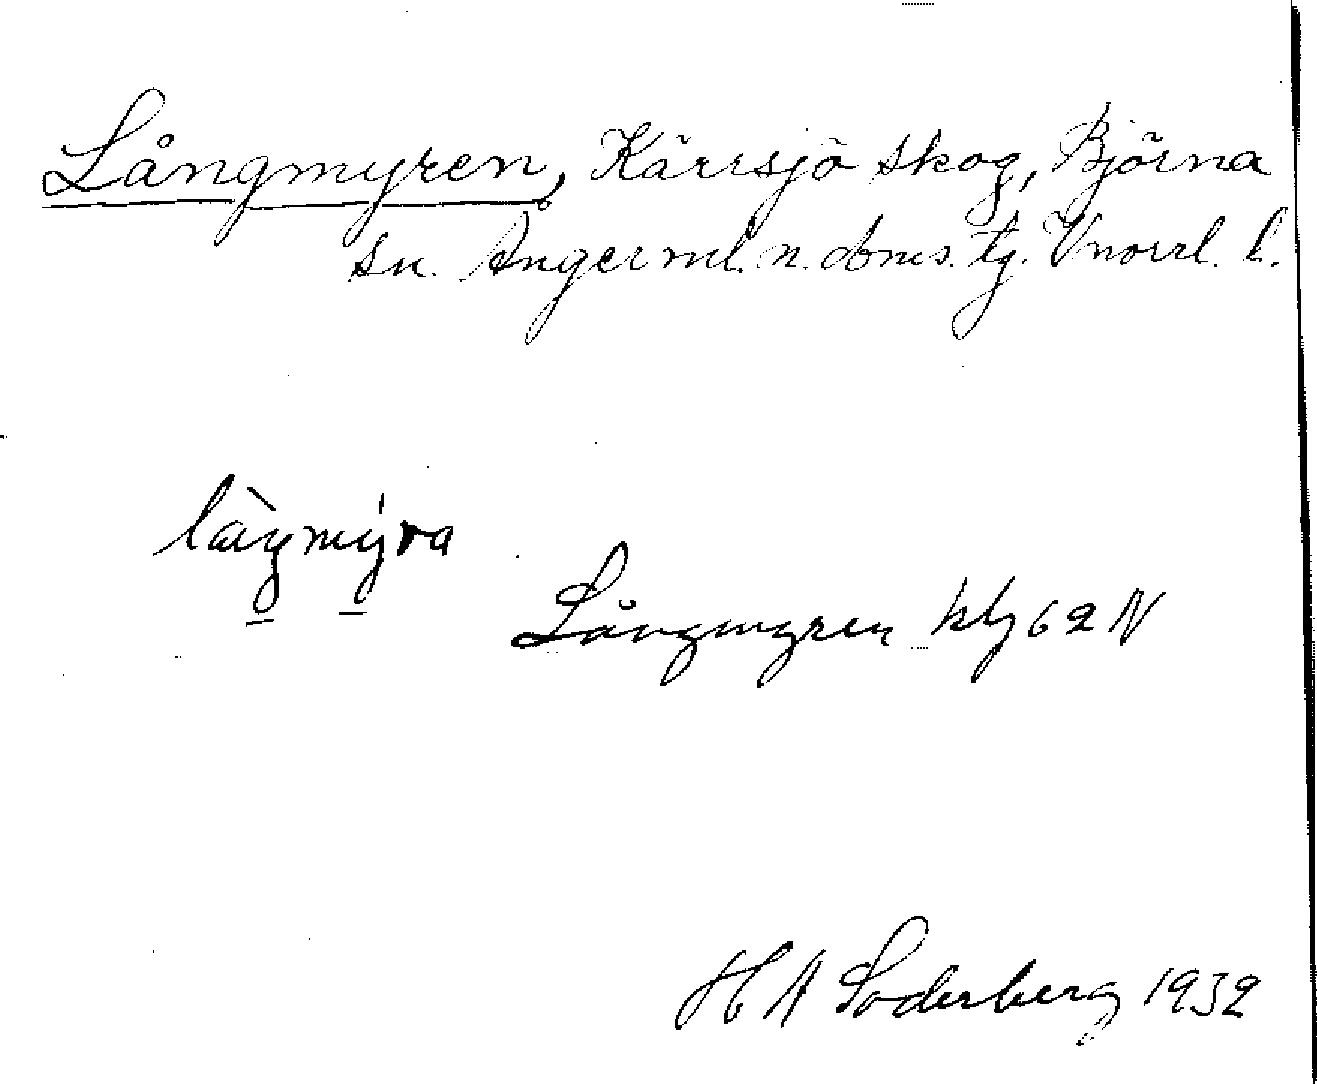 Långmyren, Kärrsjö skog, Björna
sn. Ångerml. n. doms. tg. Vnorrl. l.
Långmyren klg 62 N
H A Söderberg 1932